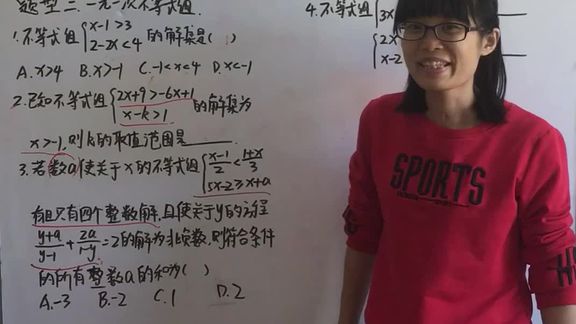 题型二:一元一次不等式组.
1.不等式组{x-1>3
2-2x<4 的解集是( )
A.x>4 B.x>-1 C.-1<x<4 D.x<-1
2.已知不等式组{2x+9>-6x+1
x-k>1 的解集为
x>-1,则k的取值范围是
3.若数a使关于x的不等式组{x-1/2<1+x/3
5x-2≥x+a
有且只有四个整数解,且使关于y的方程
y+a/y-1+2a/1-y=2的解为非负数,则符合条件
的所有整数a的和为( )
A.-3 B.-2 C.1 D.2
4.不等式组{3x
{2x
x-2
SPORTS